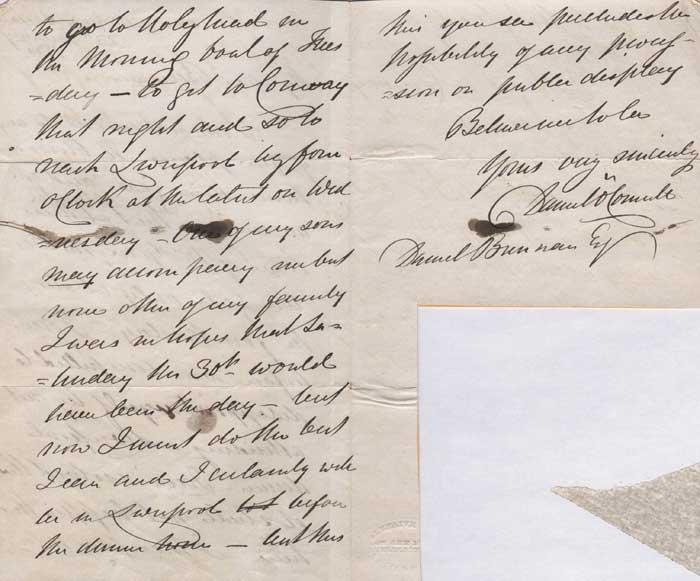 to go to Holyhead in
the Morning boat of Tues
=day – to get to Conway
that night and so to
reach Liverpool by four
o'Clock at the latest on Wed
=nesday – One of my sons
may accompany me but
none other of my family
I was in hopes that Sa-
=turday the 30th would
have been the day – but
now I must do the best
I can and I certainly will
be in Liverpool but before
the dinner hour – but this
this you see precludes the
possibility of any proces-
=sion or public display
Believe me to be
Yours very sincerely
Daniel O'Connell
Daniel Brennan Esq